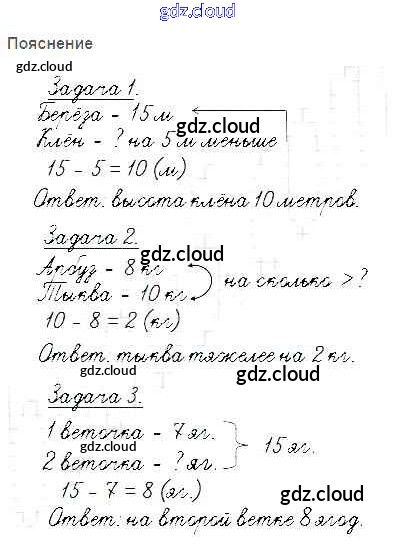 gdz.cloud
Пояснение
gdz.cloud
Задача 1.
Берёза - 15 м
gdz.cloud
Клён - ? на 5 м меньше
gdz.cloud
15 - 5 = 10 (м)
Ответ. высота клёна 10 метров.
Задача 2.
gdz.cloud
Арбуз - 8 кг
на сколько > ?
Тыква - 10 кг
gdz.cloud
10 - 8 = 2 (кг)
Ответ. тыква тяжелее на 2 кг.
gdz.cloud
gdz.cloud
Задача 3.
1 веточка - 7 яг.
15 яг.
gdz.cloud
2 веточка - ? яг.
15 - 7 = 8 (яг.)
gdz.cloud
gdz.cloud
Ответ: на второй ветке 8 ягод.